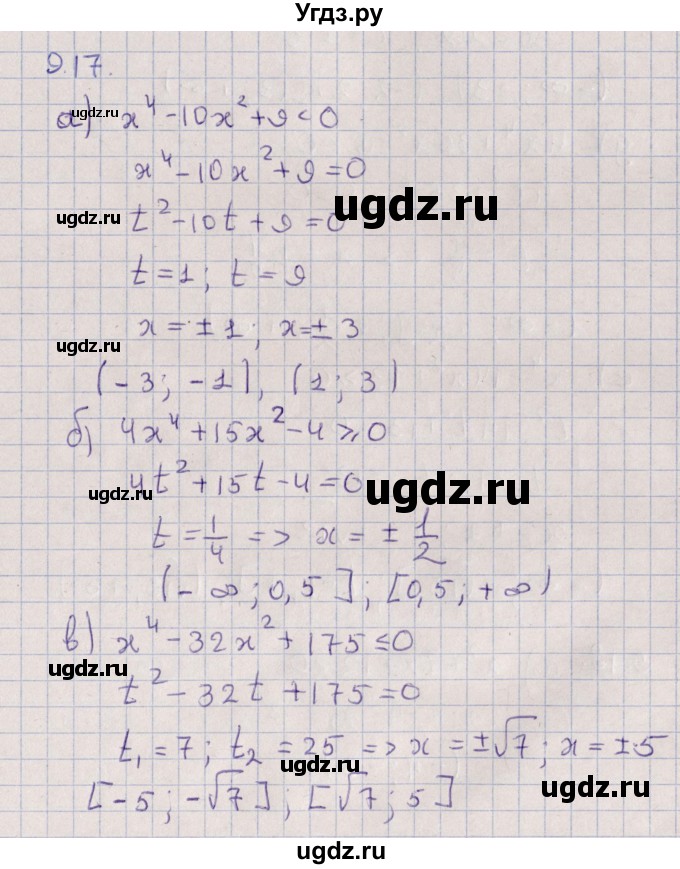 Угдз.ру
9.17.
а) x⁴ - 10x² + 9 < 0
x⁴ - 10x² + 9 = 0
ugdz.ru
ugdz.ru
t² - 10t + 9 = 0
t = 1; t = 9
x = ± 1; x = ± 3
ugdz.ru
(-3; -1), (1; 3)
б) 4x⁴ + 15x² - 4 ⩾ 0
4t² + 15t - 4 = 0
ugdz.ru
ugdz.ru
t = 1/4 => x = ± 1/2
(-∞; 0,5]; [0,5; +∞)
в) x⁴ - 32x² + 175 ≤ 0
ugdz.ru
t² - 32t + 175 = 0
t₁ = 7; t₂ = 25 => x = ±√7; x = ±5
ugdz.ru
ugdz.ru
[-5; -√7]; [√7; 5]
ugdz.ru